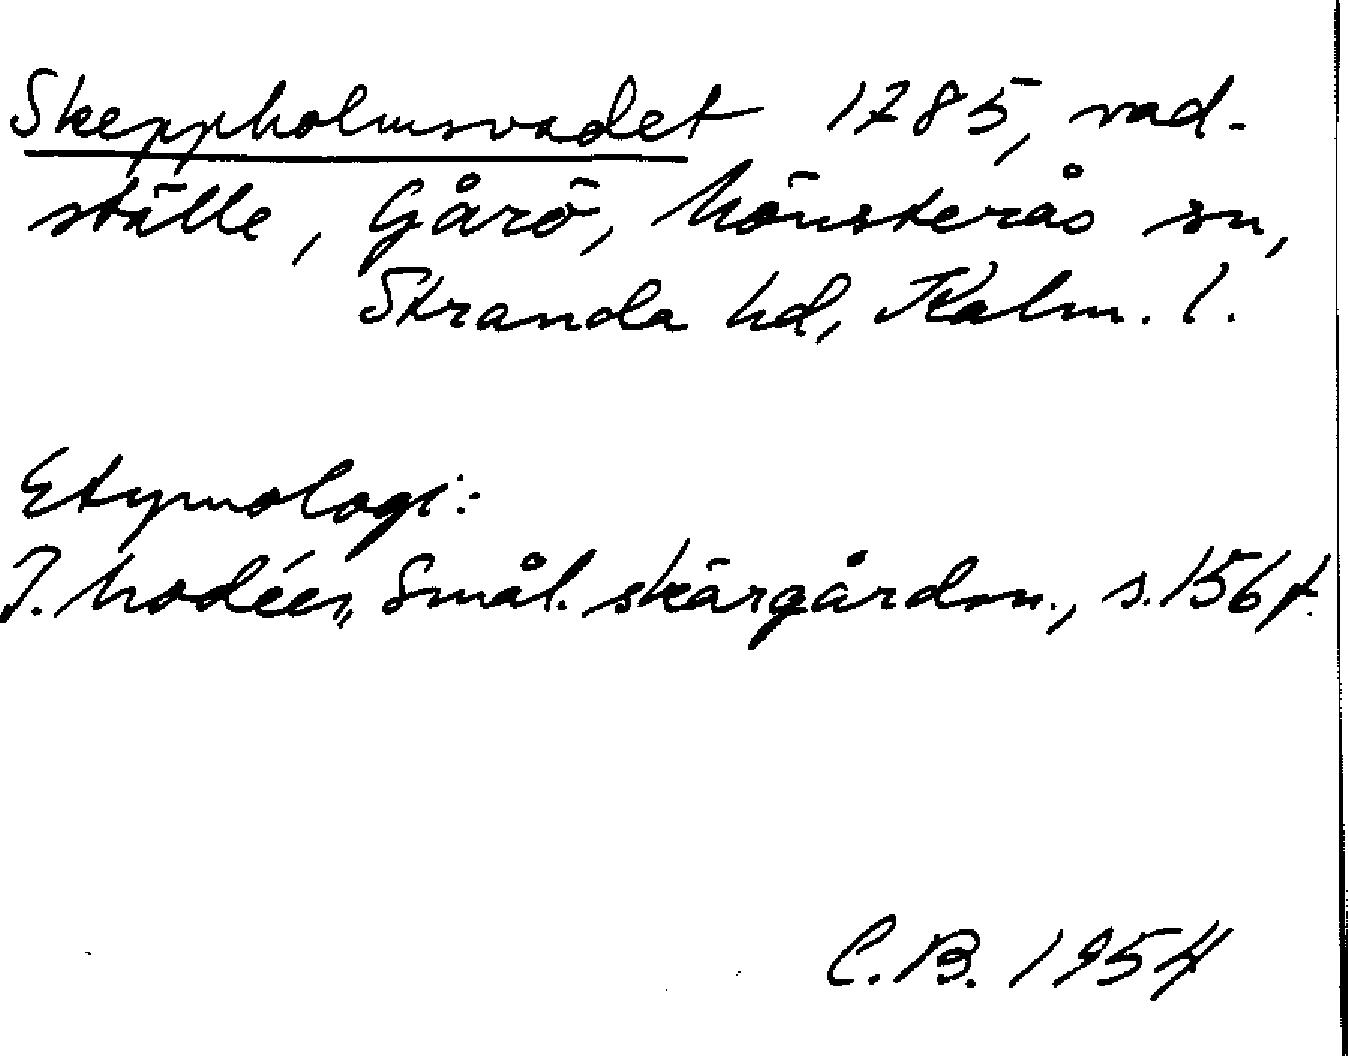 Skeppholmsvadet 1785, vad-
ställe, Gårö, Mönsterås sn,
Stranda hd, Kalm. l.
Etymologi:
J. Modéer, Smål. skärgårdsn., s. 156 f.
C.B. 1954